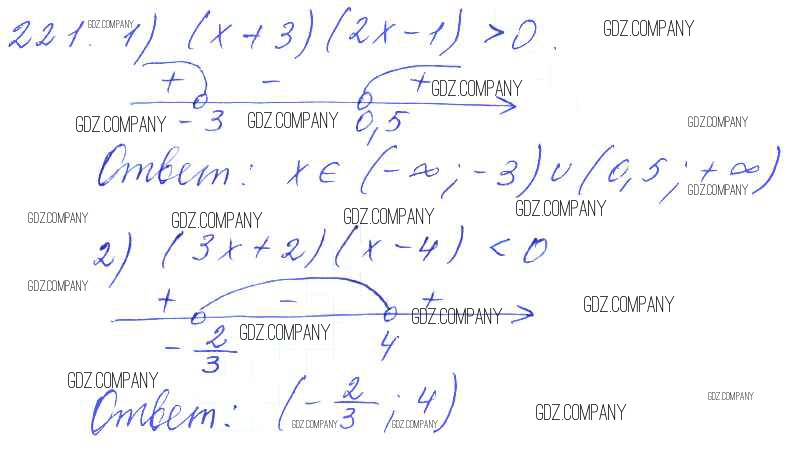 221. GDZ.COMPANY 1) (x+3)(2x-1)>0. GDZ.COMPANY
+ - + GDZ.COMPANY
GDZ.COMPANY -3 GDZ.COMPANY 0,5 GDZ.COMPANY
Ответ: x∈(-∞;-3)∪(0,5;+∞)
GDZ.COMPANY
GDZ.COMPANY GDZ.COMPANY GDZ.COMPANY GDZ.COMPANY
2) (3x+2)(x-4)<0
GDZ.COMPANY
+ - + GDZ.COMPANY
GDZ.COMPANY GDZ.COMPANY
-2/3 4
GDZ.COMPANY
Ответ: (-2/3;4)
GDZ.COMPANY GDZ.COMPANY GDZ.COMPANY GDZ.COMPANY